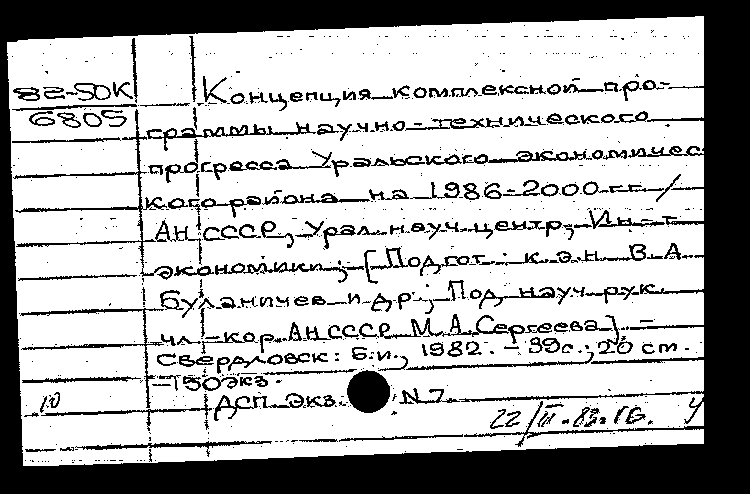 82-50К Концепция комплексной про-
6805 граммы научно-технического
прогресса Уральского экономичес
кого района на 1986-2000 гг. /
АН СССР, Урал. науч. центр, Ин-т
экономики; [Подгот.: к.э.н. В.А.
Буланичев и др.; Под науч. рук.
чл.-кор. АН СССР М.А.Сергеева]. -
Свердловск: Б.и., 1982. - 39с.; 20 см.
-150экз.
10 ДСП. Экз. N 7.
22/III.-83.